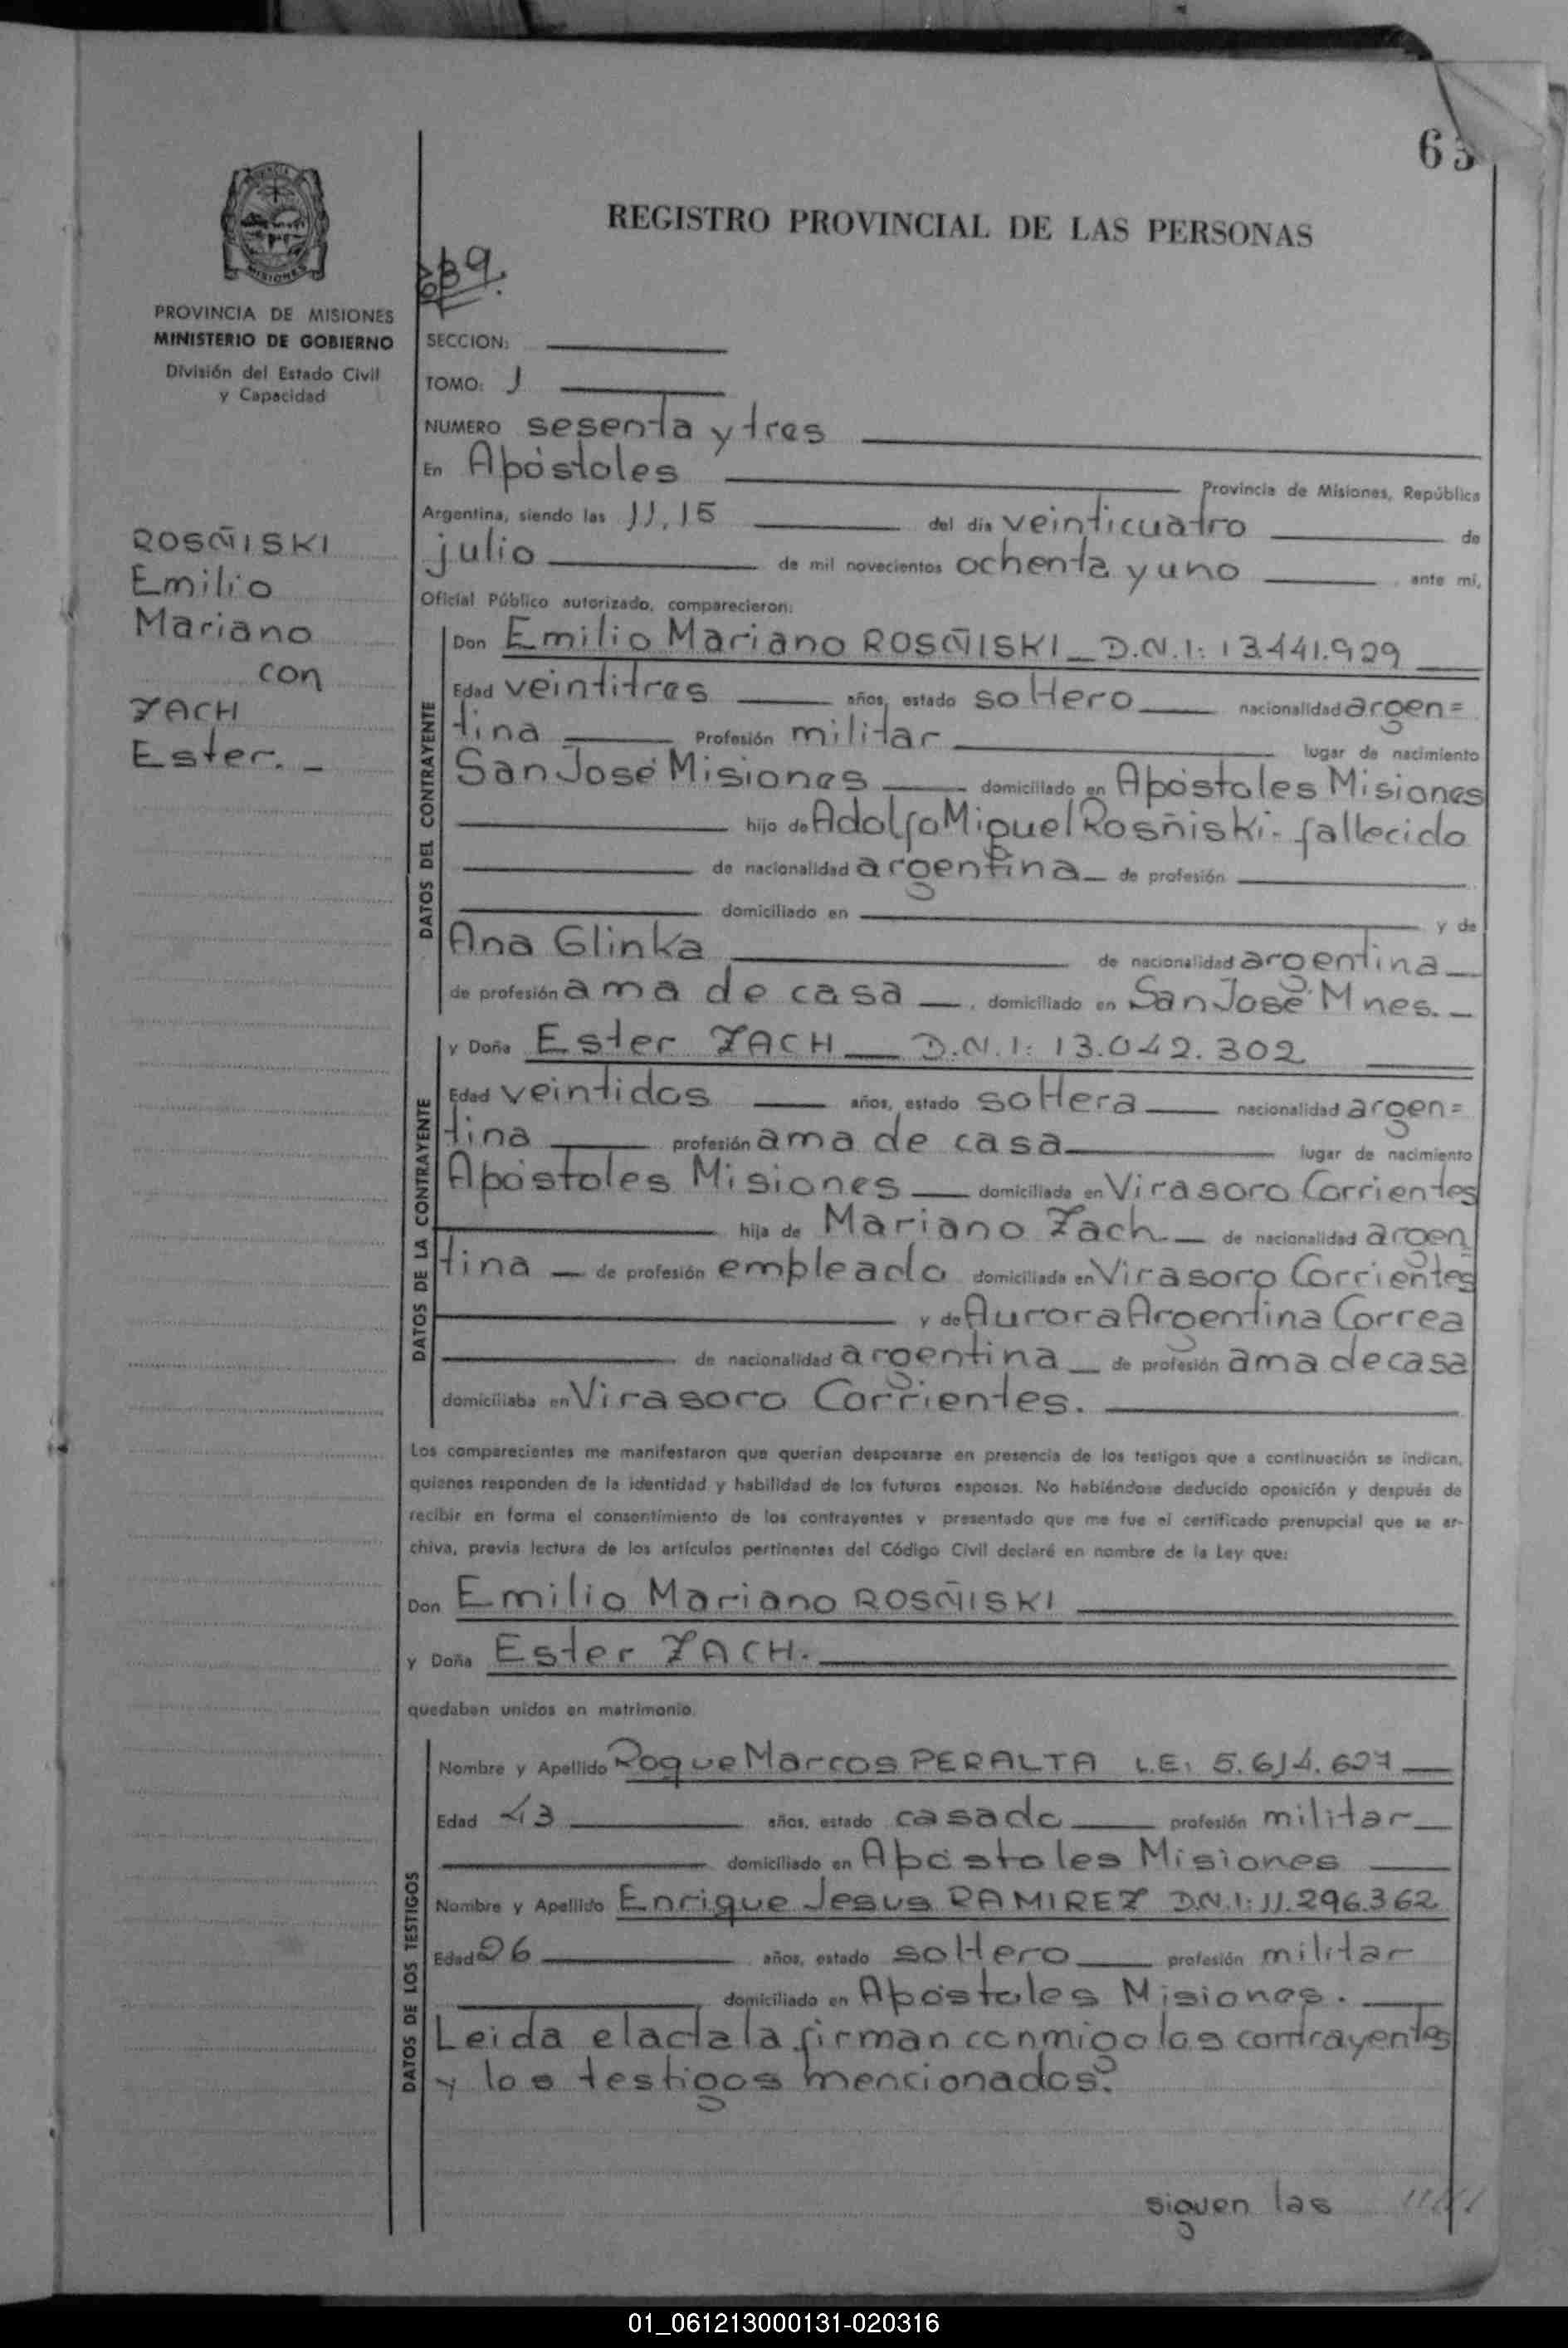 63
REGISTRO PROVINCIAL DE LAS PERSONAS
MISIONES
PROVINCIA DE MISIONES
MINISTERIO DE GOBIERNO
División del Estado Civil
y Capacidad
ROSÑISKI
Emilio
Mariano
con
ZACH
Ester. -
SECCION:
TOMO: I
NUMERO sesenta y tres
En Apóstoles Provincia de Misiones, República
Argentina, siendo las 11,15 del día veinticuatro de
julio de mil novecientos ochenta y uno ante mí,
Oficial Público autorizado, comparecieron:
DATOS DEL CONTRAYENTE
Don Emilio Mariano ROSÑISKI _ D.N.I: 13.441.929
Edad veintitres años, estado soltero nacionalidad argen=
tina Profesión militar lugar de nacimiento
San José Misiones domiciliado en Apóstoles Misiones
hijo de Adolfo Miguel Rosñiski - fallecido
de nacionalidad argentina de profesión
domiciliado en y de
Ana Glinka de nacionalidad argentina
de profesión ama de casa , domiciliado en San José Mnes. -
DATOS DE LA CONTRAYENTE
y Doña Ester ZACH D.N.I: 13.042.302
Edad veintidos años, estado soltera nacionalidad argen=
tina profesión ama de casa lugar de nacimiento
Apóstoles Misiones domiciliada en Virasoro Corrientes
hija de Mariano Zach de nacionalidad argen
tina de profesión empleado domiciliada en Virasoro Corrientes
y de Aurora Argentina Correa
de nacionalidad argentina de profesión ama de casa
domiciliaba en Virasoro Corrientes.
Los comparecientes me manifestaron que querían desposarse en presencia de los testigos que a continuación se indican,
quienes responden de la identidad y habilidad de los futuros esposos. No habiéndose deducido oposición y después de
recibir en forma el consentimiento de los contrayentes y presentado que me fue el certificado prenupcial que se ar-
chiva, previa lectura de los artículos pertinentes del Código Civil declaré en nombre de la Ley que:
Don Emilio Mariano ROSÑISKI
y Doña Ester ZACH.
quedaban unidos en matrimonio.
DATOS DE LOS TESTIGOS
Nombre y Apellido Roque Marcos PERALTA L.E: 5.614.627
Edad 43 años, estado casado profesión militar
domiciliado en Apóstoles Misiones
Nombre y Apellido Enrique Jesus RAMIREZ D.N.I: 11.296.362
Edad 26 años, estado soltero profesión militar
domiciliado en Apóstoles Misiones.
Leida el acta la firman conmigo los contrayentes
y los testigos mencionados.
siguen las /////
01_061213000131-020316